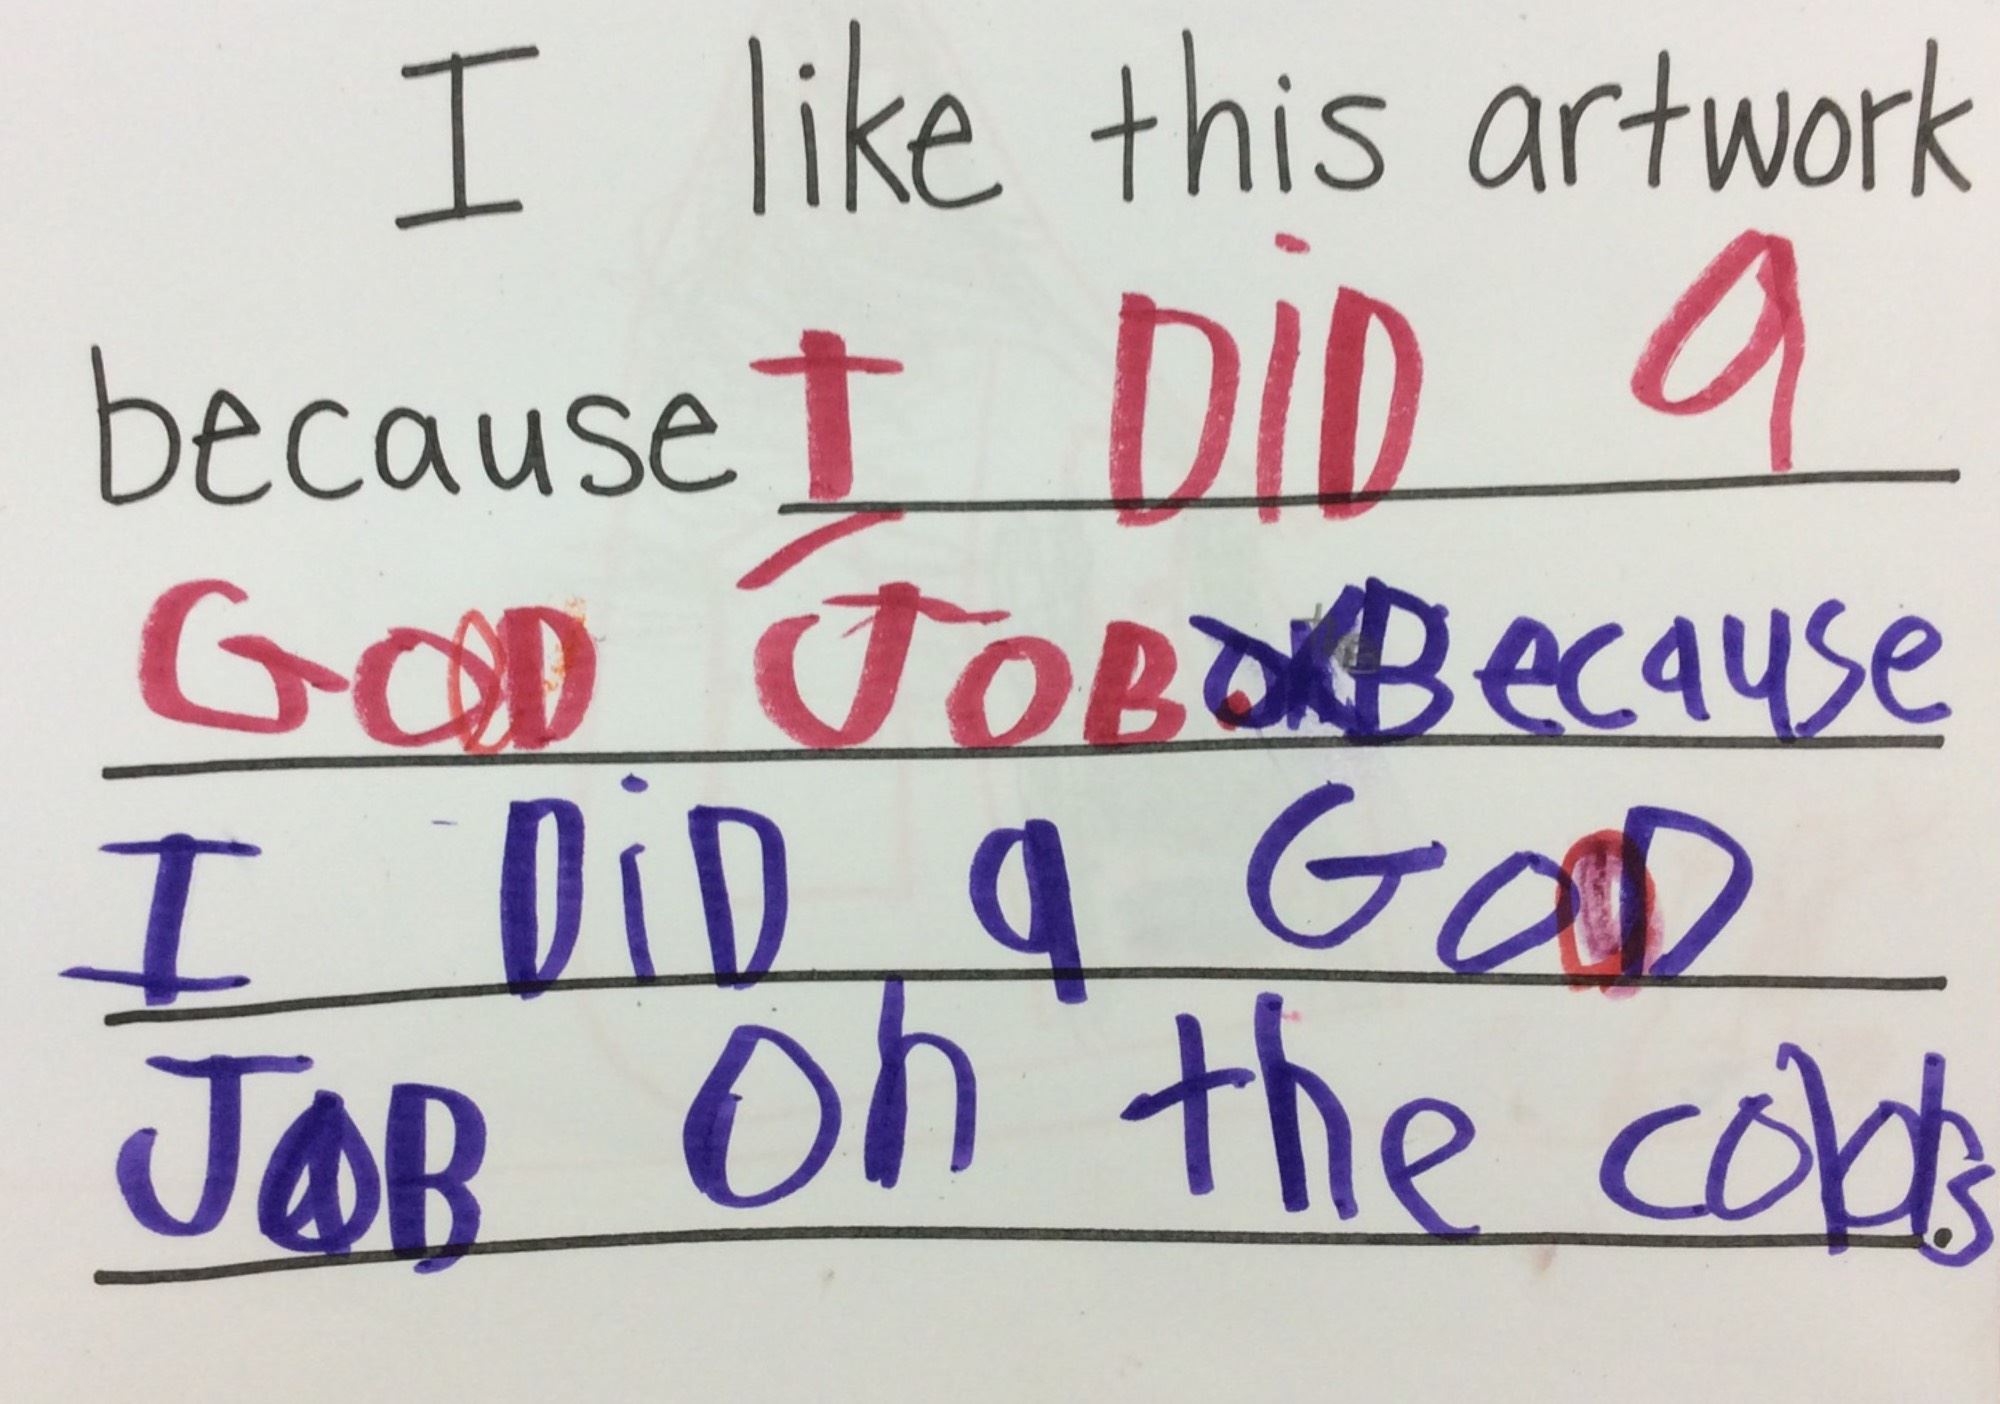 I like this artwork
because I DiD a
GooD JOB. Because
I DiD a GooD
JOB on the colors.